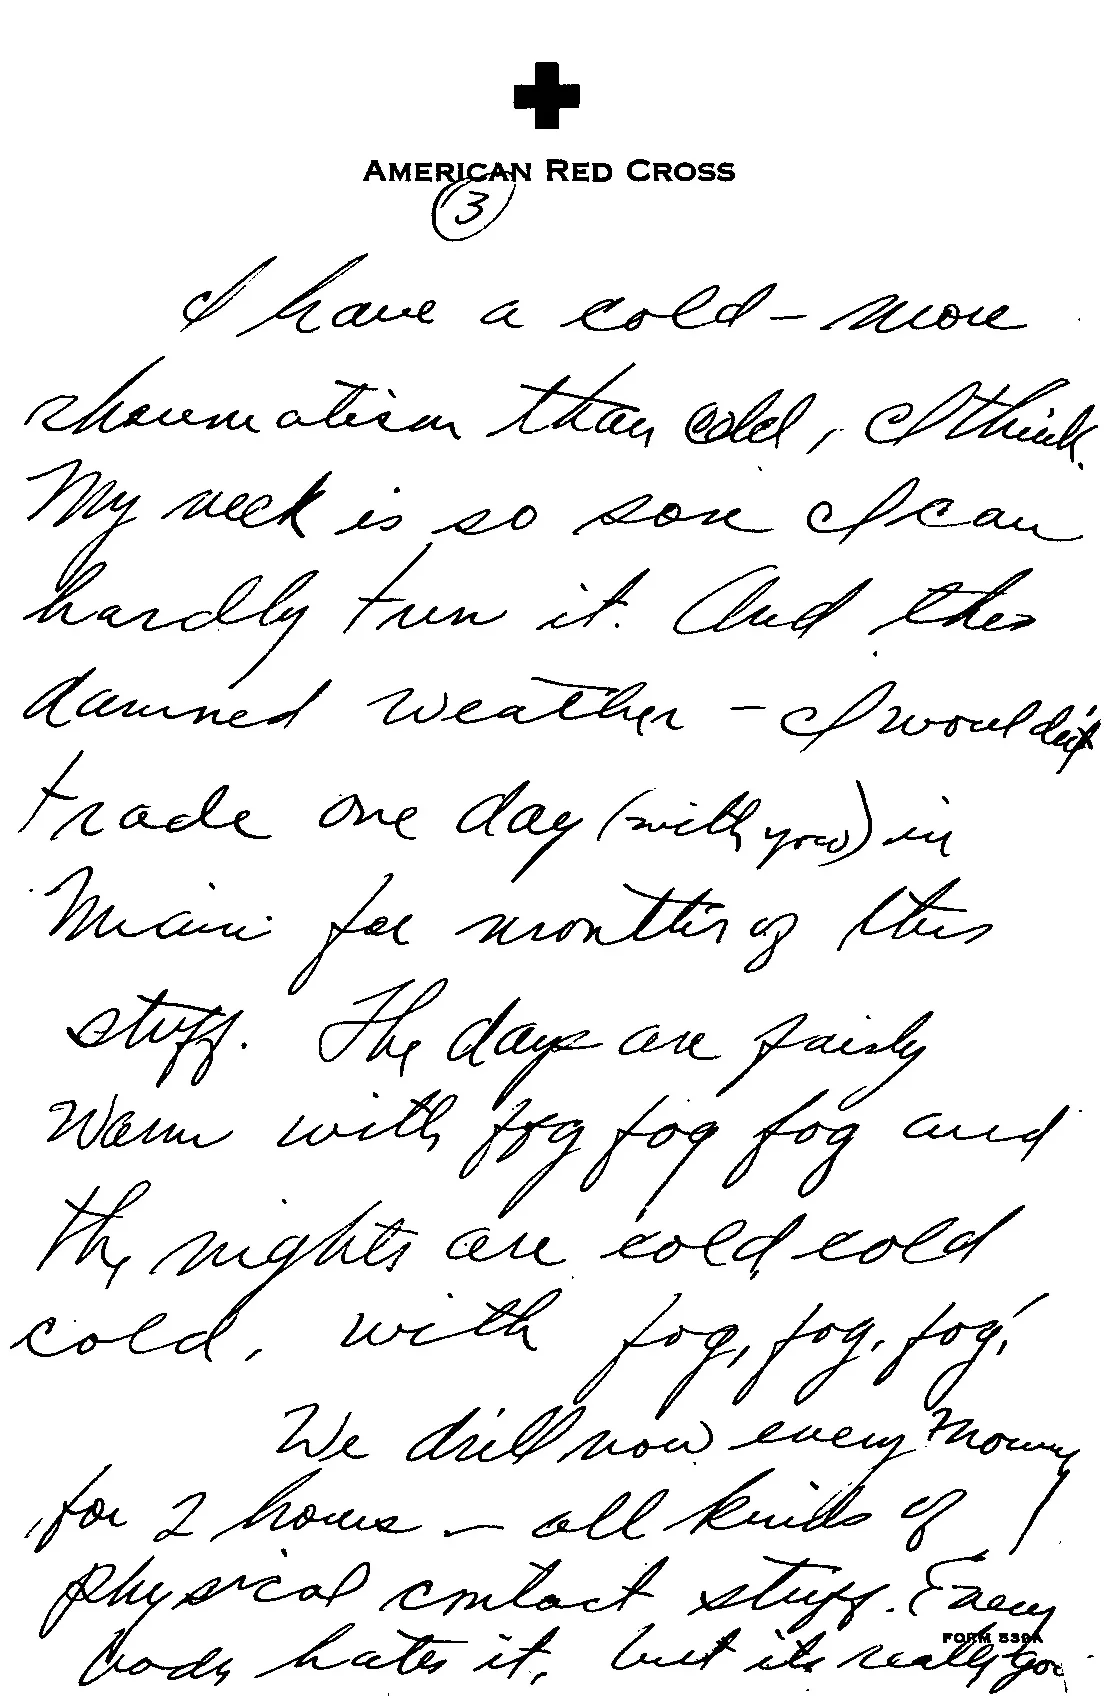 AMERICAN RED CROSS
3
I have a cold - more
rheumatism than cold, I think.
My neck is so sore I can
hardly turn it. And this
damned weather - I wouldn't
trade one day (with you) in
Miami for months of this
stuff. The days are fairly
warm with fog fog fog and
the nights are cold, cold
cold, with fog, fog, fog!
We drill now every morning
for 2 hours - all kinds of
physical contact stuff. Every
FORM 539A
body hates it, but its really